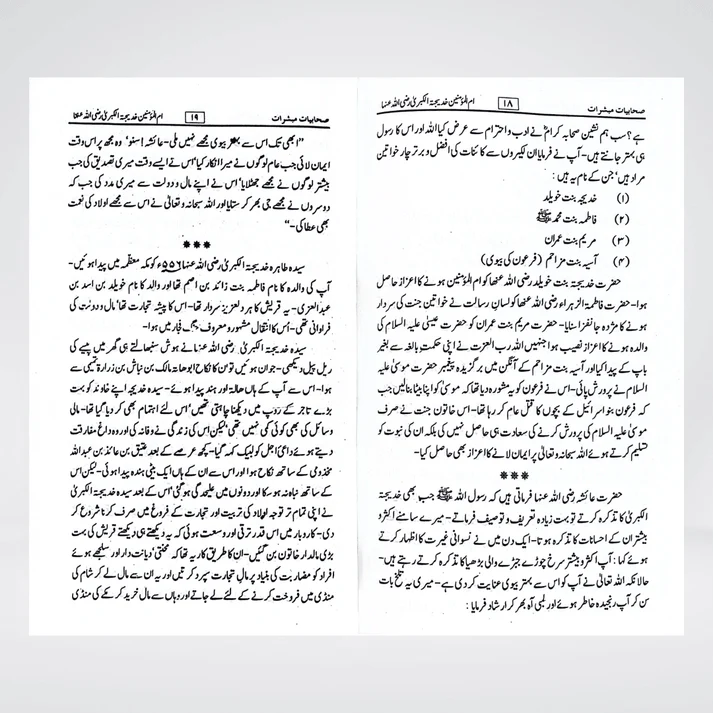 صحابیات مبشرات ۱۸ ام المؤمنین خدیجۃ الکبریٰ رضی اللہ عنہا
ہے؟ سب ہم نشین صحابہ کرامؓ نے ادب و احترام سے عرض کیا اللہ اور اس کا رسول
ہی بہتر جانتے ہیں۔ آپ نے فرمایا ان لکیروں سے کائنات کی افضل و برتر چار خواتین
مراد ہیں جن کے نام یہ ہیں :
(۱) خدیجہ بنت خویلد
(۲) فاطمہ بنت محمد ﷺ
(۳) مریم بنت عمران
(۴) آسیہ بنت مزاحم (فرعون کی بیوی)
حضرت خدیجہ بنت خویلد رضی اللہ عنھا کو ام المؤمنین ہونے کا اعزاز حاصل
ہوا۔ حضرت فاطمۃ الزہراء رضی اللہ عنھا کو لسان رسالت نے خواتین جنت کی سردار
ہونے کا مژدہ جانفزا سنایا۔ حضرت مریم بنت عمران کو حضرت عیسیٰ علیہ السلام کی
والدہ ہونے کا اعزاز نصیب ہوا جنہیں اللہ رب العزت نے اپنی حکمت بالغہ سے بغیر
باپ کے پیدا کیا اور آسیہ بنت مزاحم کے آنگن میں برگزیدہ پیغمبر حضرت موسیٰ علیہ
السلام نے پرورش پائی۔ اس نے فرعون کو یہ مشورہ دیا تھا کہ موسیٰ کو اپنا بیٹا بنالیں جب
کہ فرعون بنو اسرائیل کے بچوں کا قتل عام کر رہا تھا۔ اس خاتون جنت نے صرف
موسیٰ علیہ السلام کی پرورش کرنے کی سعادت ہی حاصل نہیں کی بلکہ ان کی نبوت کو
تسلیم کرتے ہوئے اللہ سبحانہ وتعالیٰ پر ایمان لانے کا اعزاز بھی حاصل کیا۔
***
حضرت عائشہ رضی اللہ عنہا فرماتی ہیں کہ رسول اللہ ﷺ جب بھی خدیجۃ
الکبریٰ کا تذکرہ کرتے تو بہت زیادہ تعریف و توصیف فرماتے۔ میرے سامنے اکثر و
بیشتر ان کے احسانات کا تذکرہ ہوتا۔ ایک دن میں نے نسوانی غیرت کا اظہار کرتے
ہوئے کہا : آپ اکثر و بیشتر سرخ چوڑے جبڑے والی بڑھیا کا تذکرہ کرتے رہتے ہیں۔
حالانکہ اللہ تعالیٰ نے آپ کو اس سے بہتر بیوی عنایت کر دی ہے۔ میری یہ تلخ بات
سن کر آپ رنجیدہ خاطر ہوئے اور لمبی آہ بھر کر ارشاد فرمایا :
صحابیات مبشرات ۱۹ ام المؤمنین خدیجۃ الکبریٰ رضی اللہ عنھا
"ابھی تک اس سے بہتر بیوی مجھے نہیں ملی۔ عائشہ! سنو' وہ مجھ پر اس وقت
ایمان لائی جب عام لوگوں نے میرا انکار کیا' اس نے ایسے وقت میری تصدیق کی جب
بیشتر لوگوں نے مجھے جھٹلایا' اس نے اپنے مال و دولت سے میری مدد کی جب کہ
دوسروں نے مجھے جی بھر کر ستایا اور اللہ سبحانہ وتعالیٰ نے اس سے مجھے اولاد کی نعمت
بھی عطا کی۔"
***
سیدہ طاہرہ خدیجۃ الکبریٰ رضی اللہ عنھا ۵۵۶ء کو مکہ معظمہ میں پیدا ہوئیں۔
آپ کی والدہ کا نام فاطمہ بنت زائد بن اصم تھا اور والد کا نام خویلد بن اسد بن
عبدالعزی۔ یہ قریش کا ہر دلعزیز سردار تھا۔ اس کا پیشہ تجارت تھا' مال و دولت کی
فراوانی تھی۔ اس کا انتقال مشہور و معروف جنگ فجار میں ہوا۔
سیدہ خدیجۃ الکبریٰ رضی اللہ عنہا نے ہوش سنبھالتے ہی گھر میں پیسے کی
ریل پیل دیکھی۔ جوان ہوئیں تو ان کا نکاح ابو ھالہ مالک بن نباش بن زرارۃ تمیمی سے
ہوا۔ اس سے آپ کے ہاں ھالہ اور ہند پیدا ہوئے۔ سیدہ خدیجہ اپنے خاوند کو بہت
بڑے تاجر کے روپ میں دیکھنا چاہتی تھیں' اس لئے اہتمام بھی کر دیا گیا تھا۔ مالی
وسائل کی بھی کوئی کمی نہیں تھی' لیکن اس کی زندگی نے وفا نہ کی اور وہ داغ مفارقت
دیتے ہوئے داعی اجل کو لبیک کہہ گیا۔ کچھ عرصے کے بعد عتیق بن عائذ بن عبداللہ
مخزومی کے ساتھ نکاح ہوا اور اس سے ان کے ہاں ایک بیٹی ہندہ پیدا ہوئی۔ لیکن اس
کے ساتھ نباہ نہ ہو سکا اور دونوں میں علیحدگی ہو گئی' اس کے بعد سیدہ خدیجۃ الکبریٰ
نے اپنی تمام تر توجہ اولاد کی تربیت اور تجارت کے فروغ میں صرف کرنا شروع کر
دی۔ کاروبار میں اس قدر ترقی اور وسعت ہوئی کہ یہ دیکھتے ہی دیکھتے قریش کی بہت
بڑی مالدار خاتون بن گئیں۔ ان کا طریق کار یہ تھا کہ محنتی' دیانت دار اور سلجھے ہوئے
افراد کو مضاربت کی بنیاد پر مال تجارت سپرد کرتیں اور یہ ان سے مال لے کر شام کی
منڈی میں فروخت کرنے کے لئے لے جاتے اور وہاں سے مال خرید کر مکے کی منڈی